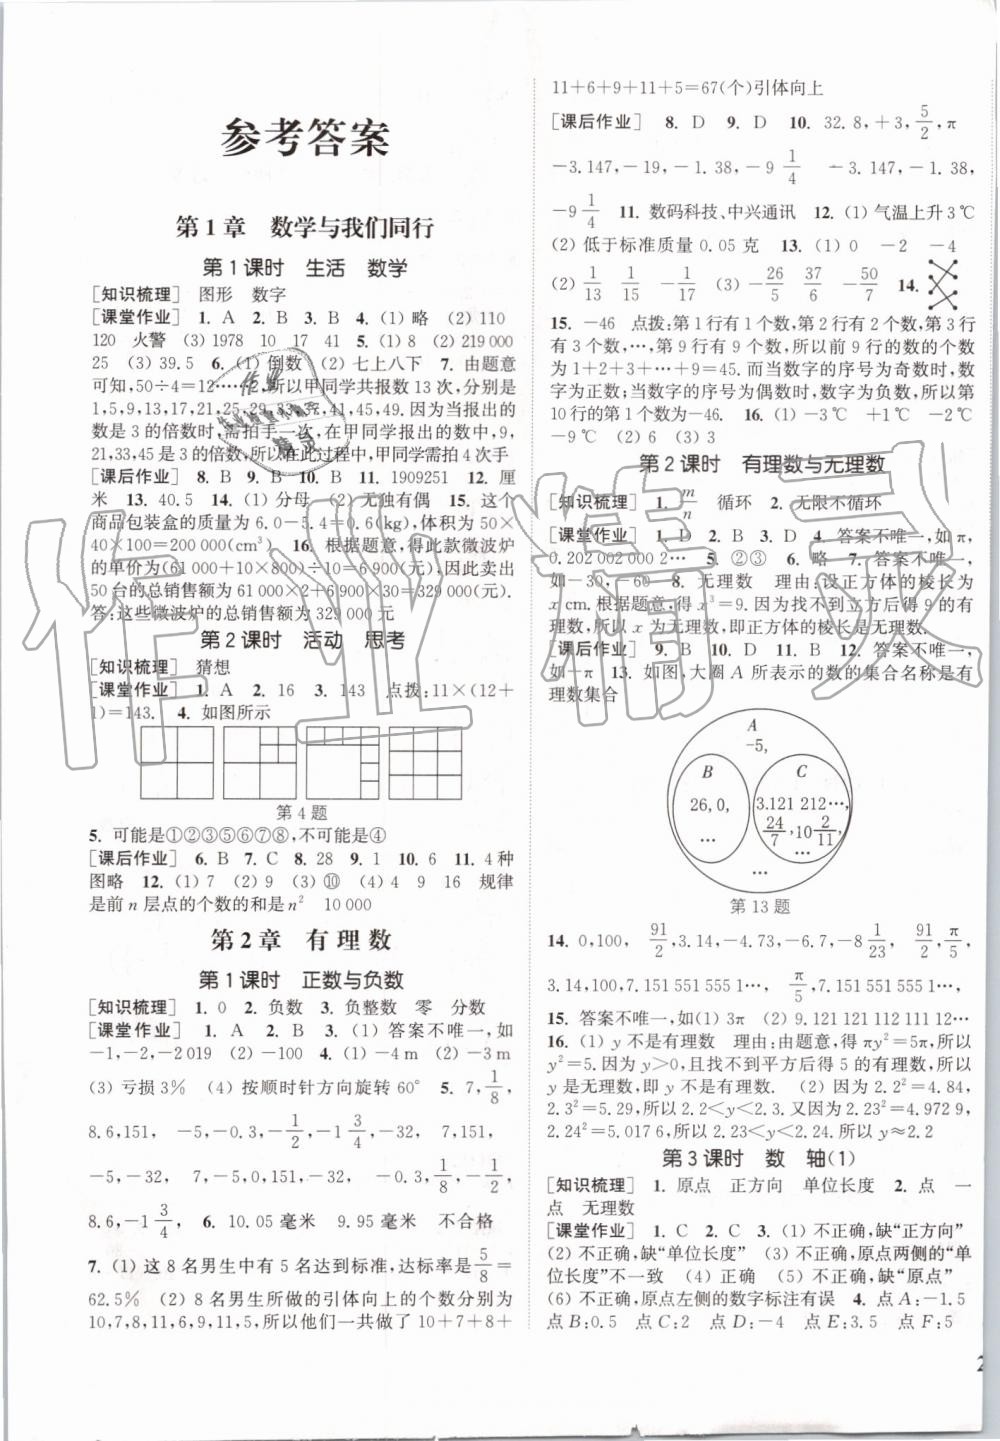 参考答案
第1章 数学与我们同行
第1课时 生活 数学
[知识梳理] 图形 数字
[课堂作业] 1. A 2. B 3. B 4. (1)略 (2)110
120 火警 (3)1978 10 17 41 5. (1)8 (2)219 000
25 (3)39.5 6. (1)倒数 (2)七上八下 7. 由题意
可知,50÷4=12……2,所以甲同学共报数13次,分别是
1,5,9,13,17,21,25,29,33,37,41,45,49.因为当报出的
数是3的倍数时,需拍手一次,在甲同学报出的数中,9,
21,33,45是3的倍数,所以在此过程中,甲同学需拍4次手
[课后作业] 8. B 9. B 10. B 11. 1909251 12. 厘
米 13. 40.5 14. (1)分母 (2)无独有偶 15. 这个
商品包装盒的质量为6.0-5.4=0.6(kg),体积为50×
40×100=200 000(cm³) 16. 根据题意,得此款微波炉
的单价为(61 000+10×800)÷10=6 900(元),因此卖出
50台的总销售额为61 000×2+6 900×30=329 000(元).
答:这些微波炉的总销售额为329 000元
第2课时 活动 思考
[知识梳理] 猜想
[课堂作业] 1. A 2. 16 3. 143 点拨:11×(12+
1)=143. 4. 如图所示
第4题
5. 可能是①②③⑤⑥⑦⑧,不可能是④
[课后作业] 6. B 7. C 8. 28 9. 1 10. 6 11. 4种
图略 12. (1)7 (2)9 (3)⑩ (4)4 9 16 规律
是前n层点的个数的和是n² 10 000
第2章 有理数
第1课时 正数与负数
[知识梳理] 1. 0 2. 负数 3. 负整数 零 分数
[课堂作业] 1. A 2. B 3. (1)答案不唯一,如
-1,-2,-2 019 (2)-100 4. (1)-4 m (2)-3 m
(3)亏损3% (4)按顺时针方向旋转60° 5. 7,1/8,
8.6,151, -5,-0.3,-1/2,-1 3/4,-32, 7,151,
-5,-32, 7,-5,0,151,-32, -0.3,1/8,-1/2,
8.6,-1 3/4 6. 10.05毫米 9.95毫米 不合格
7. (1)这8名男生中有5名达到标准,达标率是5/8=
62.5% (2)8名男生所做的引体向上的个数分别为
10,7,8,11,6,9,11,5,所以他们一共做了10+7+8+
11+6+9+11+5=67(个)引体向上
[课后作业] 8. D 9. D 10. 32.8,+3,5/2,π
-3.147,-19,-1.38,-9 1/4 -3.147,-1.38,
-9 1/4 11. 数码科技、中兴通讯 12. (1)气温上升3℃
(2)低于标准质量0.05克 13. (1)0 -2 -4
(2)1/13 1/15 -1/17 (3)-26/5 37/6 -50/7 14.
15. -46 点拨:第1行有1个数,第2行有2个数,第3行
有3个数,…,第9行有9个数,所以前9行的数的个数
为1+2+3+…+9=45.而当数字的序号为奇数时,数
字为正数;当数字的序号为偶数时,数字为负数,所以第
10行的第1个数为-46. 16. (1)-3℃ +1℃ -2℃
-9℃ (2)6 (3)3
第2课时 有理数与无理数
[知识梳理] 1. m/n 循环 2. 无限不循环
[课堂作业] 1. D 2. B 3. D 4. 答案不唯一,如π,
0.202 002 000 2… 5. ②③ 6. 略 7. 答案不唯一,
如-30,-60 8. 无理数 理由:设正方体的棱长为
x cm.根据题意,得x³=9.因为找不到立方后得9的有理
数,所以x为无理数,即正方体的棱长是无理数.
[课后作业] 9. B 10. D 11. B 12. 答案不唯一,
如-π 13. 如图,大圈A所表示的数的集合名称是有
理数集合
A
-5,
B
26,0,
…
C
3.121 212…,
24/7,10 2/11
…
…
第13题
14. 0,100, 91/2,3.14,-4.73,-6.7,-8 1/23 91/2,π/5,
3.14,100,7.151 551 555 1…, π/5,7.151 551 555 1…
15. 答案不唯一,如(1)3π (2)9.121 121 112 111 12…
16. (1)y不是有理数 理由:由题意,得πy²=5π,所以
y²=5.因为y>0,且找不到平方后得5的有理数,所以
y是无理数,即y不是有理数. (2)因为2.2²=4.84,
2.3²=5.29,所以2.2<y<2.3.又因为2.23²=4.972 9,
2.24²=5.017 6,所以2.23<y<2.24.所以y≈2.2
第3课时 数 轴(1)
[知识梳理] 1. 原点 正方向 单位长度 2. 点 一
点 无理数
[课堂作业] 1. C 2. C 3. (1)不正确,缺“正方向”
(2)不正确,缺“单位长度” (3)不正确,原点两侧的“单
位长度”不一致 (4)正确 (5)不正确,缺“原点”
(6)不正确,原点左侧的数字标注有误 4. 点A:-1.5
点B:0.5 点C:2 点D:-4 点E:3.5 点F:5
作业精灵